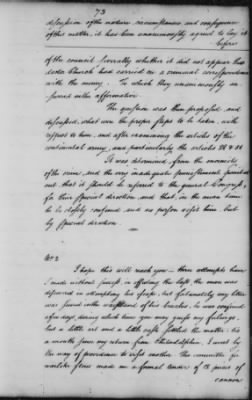 73
discussion of the nature circumstances and consequences
of this matter, it has been unanimously agreed to lay it
before
of the council severally whether it did not appear that
doctor Church had carried on a criminal correspondence
with the enemy. To which they unanimously an-
swered in the affirmative
The question was then proposed and
discussed, what were the proper steps to be taken with
respect to him, and after examining the articles of the
continental army, and particularly the articles 28 &
It was determined from the enormity
of the crime, and the very inadequate punishment pointed
out, that it should be referred to the general Congress,
for their special direction and that, in the mean time
he be closely confined and no person visit him but
by special direction.
No 2
I hope this will reach you – three attempts have
I made without success. in effecting the last, the man was
discovered in attempting his escape, but fortunately my letter
was sewed in the waistband of his breeches, he was confined
a few days, during which time you may guess my feelings,
but a little art and a little cash settled the matter. tis
a month since my return from Philadelphia, I went by
the way of providence to visit mother. The committee for
warlike stores made me a formal tender of 12 pieces of
cannon